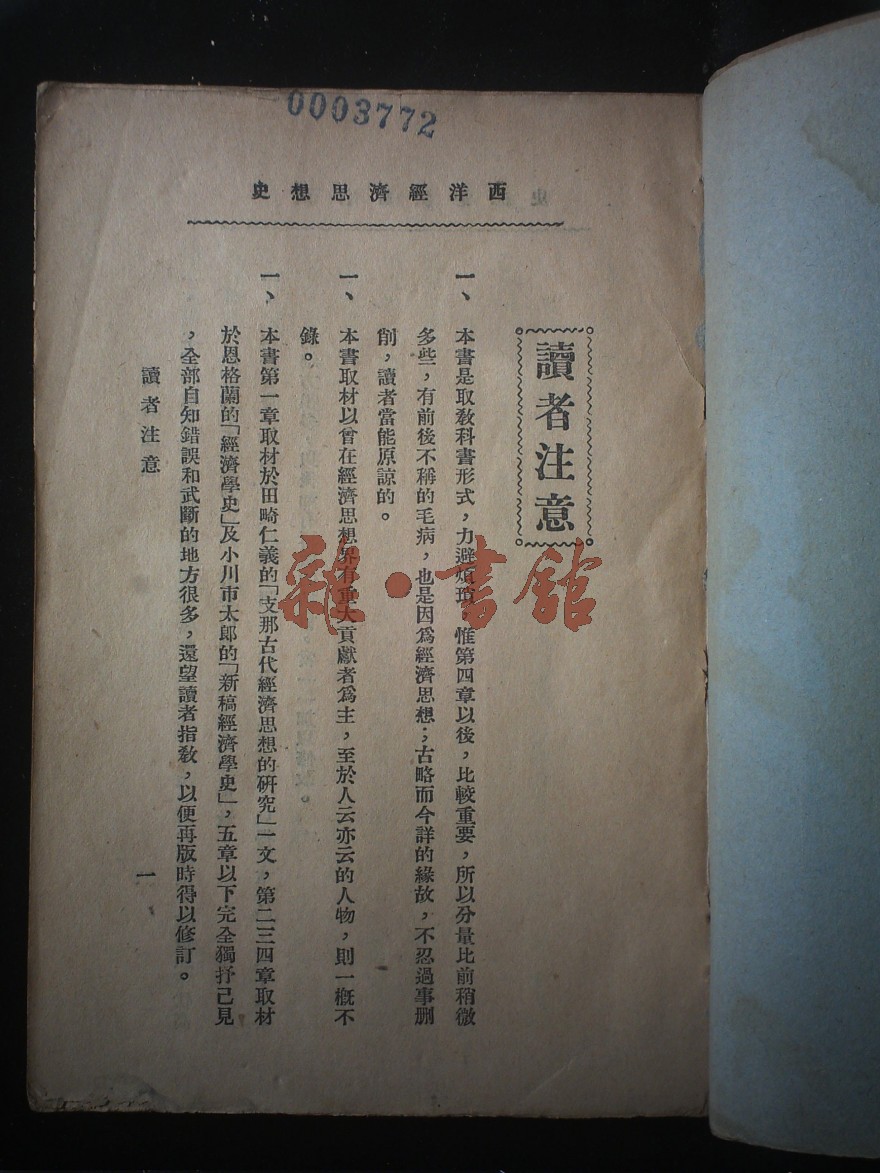 0003772
西洋經濟思想史
讀者注意
一、本書是取教科書形式，力避煩瑣，惟第四章以後，比較重要，所以分量比前稍微
多些，有前後不稱的毛病，也是因為經濟思想；古略而今詳的緣故，不忍過事删
削，讀者當能原諒的。
一、本書取材以曾在經濟思想界有重大貢獻者為主，至於人云亦云的人物，則一概不
錄。
一、本書第一章取材於田畸仁義的「支那古代經濟思想的研究」一文，第二三四章取材
於恩格蘭的「經濟學史」及小川市太郎的「新稿經濟學史」，五章以下完全獨抒己見
，全部自知錯誤和武斷的地方很多，還望讀者指教，以便再版時得以修訂。
讀者注意
一
雜·書館